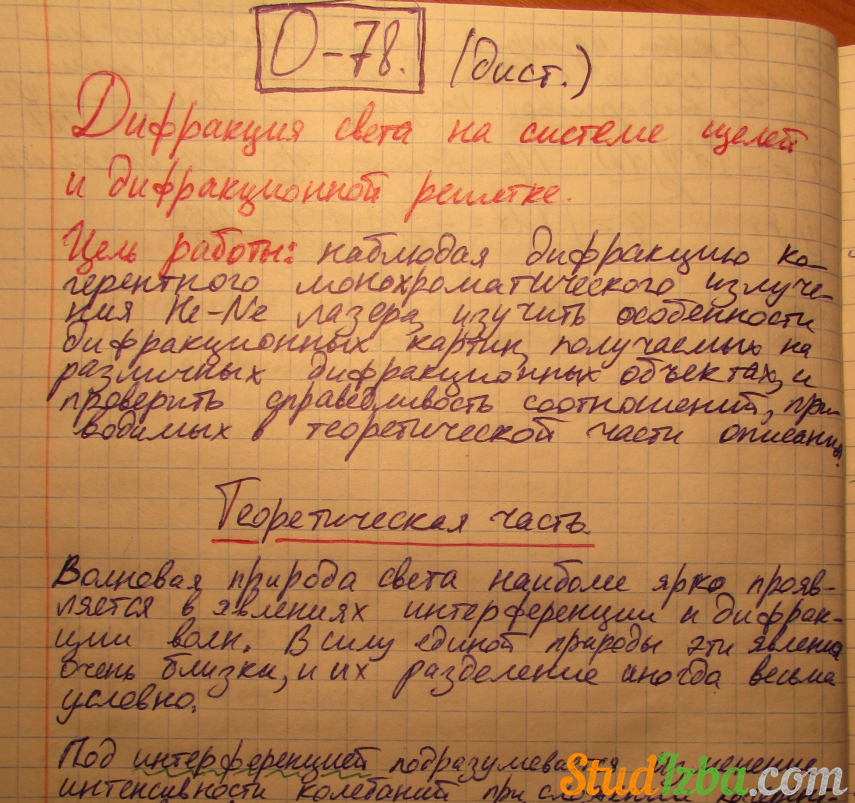 О-78. (дист.)
Дифракция света на системе щелей
и дифракционной решетке.
Цель работы: наблюдая дифракцию ко-
герентного монохроматического излуче-
ния He-Ne лазера, изучить особенности
дифракционных картин, получаемых на
различных дифракционных объектах, и
проверить справедливость соотношений, при-
водимых в теоретической части описания.
Теоретическая часть.
Волновая природа света наиболее ярко прояв-
ляется в явлениях интерференции и дифрак-
ции волн. В силу единой природы эти явления
очень близки, и их разделение иногда весьма
условно.
Под интерференцией подразумевается изменение
интенсивности колебаний при сложении
StudIzba.com